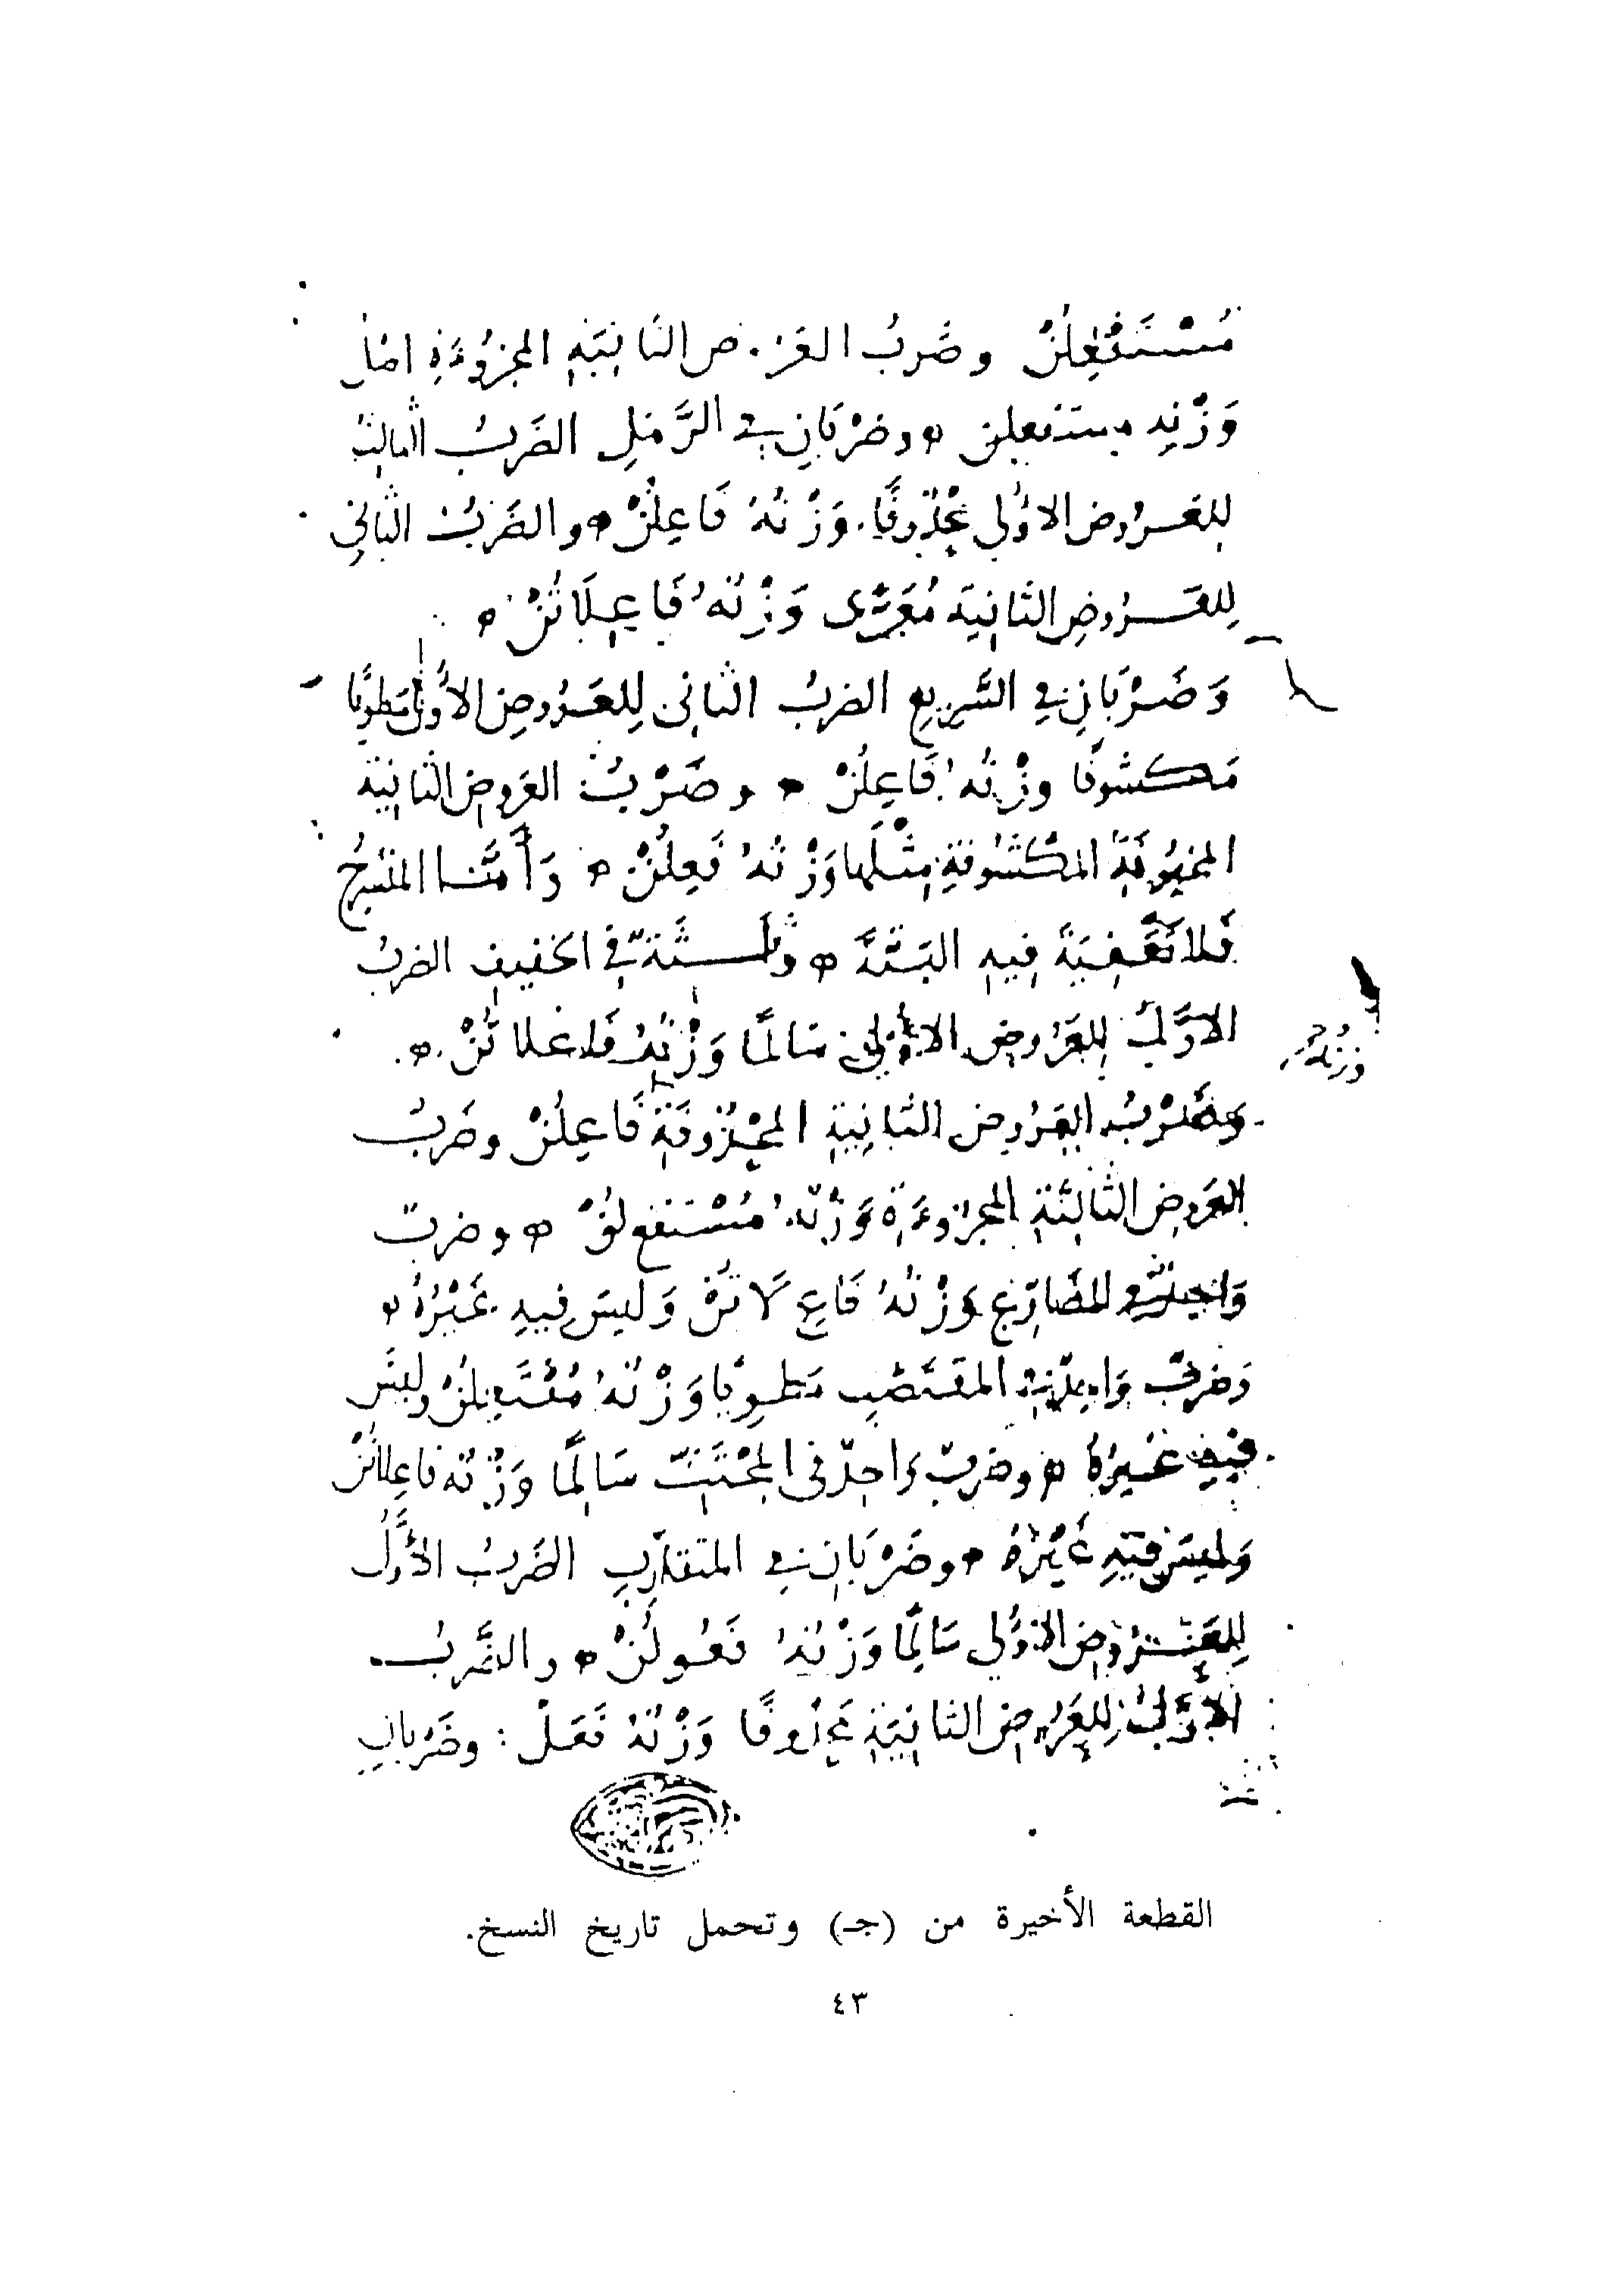 مُسْتَفْعِلُنْ وضَربُ العَرُوض الثَانِيَةِ المجزُوءَةِ
وَزْنِه مستفعلن ه وضَرْبَانِ في الرَّمَلِ الضَربُ الثالِثُ
لِلعَرُوض الاوُلي مَحْذُوفًا وَزْنُهُ فَاعِلُنْ ه والضَربُ الثانِي
لِلعَرُوضِ الثَانِيَة مُعَرَّى وَزْنُهُ فَاعِلَاتُنْ ه
وَضَرْبَانِ فِي السَّرِيعِ الضربُ الثاني لِلعَرُوضِ الأُولَى مَطْوِيًا
مَكشوفًا وزْنُهُ فَاعِلُنْ ه وضَرْبُ العَروضِ الثانِيَة
المخبُونَةِ المَكْشُوفةِ مِثْلَها وَزْنُهُ فَعِلُنْ ه وَأَمَّا المنْسَرِحُ
فَلا تَقْفِيَةَ فِيهِ البَتَّةَ ه وثلثَةٌ في الخفيفِ الضربُ
الاوَّلُ لِلعَرُوضِ الاوُلى سَالمًا وَزْنُهُ فَاعلاتُنْ ه
وزنهُ
وضَرْبُ العَرُوض الثَانِيَةِ المَحْذُوفَةِ فَاعِلُنْ وضَربُ
العَروضِ الثَالِثَةِ المجزوءَةِ وَزْنُهُ مُسْتَفعِ لُنْ ه وضربٌ
وَاحِدٌ للمضَارِعِ وَزْنُهُ فَاعِ لَاتُنْ وَليسَ فِيهِ غَيْرُهُ ه
وَضربٌ وَاحِدٌ المقتَضَبِ مَطوِيًا وَزْنُهُ مُفْتَعِلُنْ وليسَ
فِيهِ غَيرُهُ ه وضربٌ وَاحِدٌ في المُجْتَثِّ سَالِمًا وَزْنُه فاعِلاتُنْ
وَليسَ فيهِ غَيْرُهُ ه وضَرْبَانِ في المتقَارِبِ الضَربُ الأَوَّلُ
لِلعَرُوضِ الأوُلي سَالِمًا وَزْنُهُ فَعُولُنْ ه والضَّربُ
الأوَّلُ لِلعَرُوضِ الثانِيَةِ مَحذُوفًا وَزْنُهُ فَعَلْ : وضَرْبانِ
القطعة الأخيرة من (جـ) وتحمل تاريخ النسخ.
٤٣